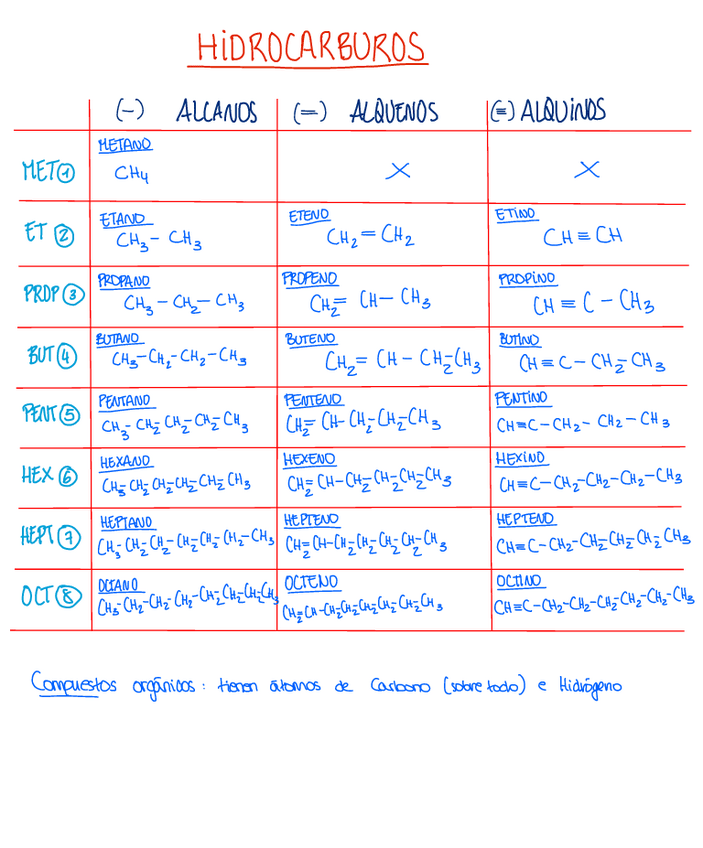 HIDROCARBUROS
(-) ALCANOS (=) ALQUENOS (≡) ALQUINOS
MET ① METANO CH₄ X X
ET ② ETANO CH₃-CH₃ ETENO CH₂=CH₂ ETINO CH≡CH
PROP ③ PROPANO CH₃-CH₂-CH₃ PROPENO CH₂=CH-CH₃ PROPINO CH≡C-CH₃
BUT ④ BUTANO CH₃-CH₂-CH₂-CH₃ BUTENO CH₂=CH-CH₂-CH₃ BUTINO CH≡C-CH₂-CH₃
PENT ⑤ PENTANO CH₃-CH₂-CH₂-CH₂-CH₃ PENTENO CH₂=CH-CH₂-CH₂-CH₃ PENTINO CH≡C-CH₂-CH₂-CH₃
HEX ⑥ HEXANO CH₃-CH₂-CH₂-CH₂-CH₂-CH₃ HEXENO CH₂=CH-CH₂-CH₂-CH₂-CH₃ HEXINO CH≡C-CH₂-CH₂-CH₂-CH₃
HEPT ⑦ HEPTANO CH₃-CH₂-CH₂-CH₂-CH₂-CH₂-CH₃ HEPTENO CH₂=CH-CH₂-CH₂-CH₂-CH₂-CH₃ HEPTENO CH≡C-CH₂-CH₂-CH₂-CH₂-CH₃
OCT ⑧ OCTANO CH₃-CH₂-CH₂-CH₂-CH₂-CH₂-CH₂-CH₃ OCTENO CH₂=CH-CH₂-CH₂-CH₂-CH₂-CH₂-CH₃ OCTINO CH≡C-CH₂-CH₂-CH₂-CH₂-CH₂-CH₃
Compuestos orgánicos: tienen átomos de Carbono (sobre todo) e Hidrógeno